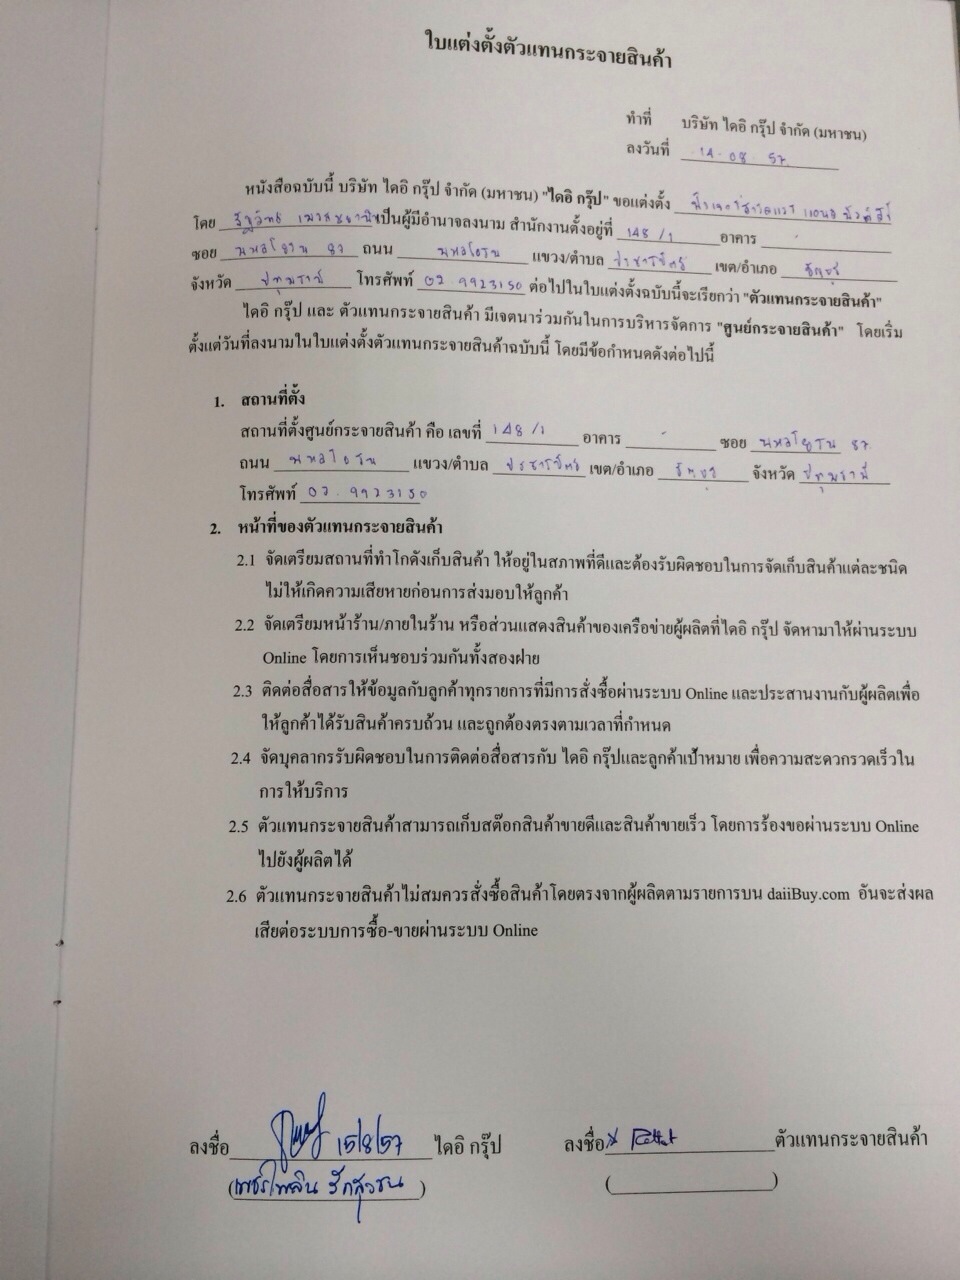 ใบแต่งตั้งตัวแทนกระจายสินค้า
ทำที่ บริษัท ไดอิ กรุ๊ป จำกัด (มหาชน)
ลงวันที่ 14-08-57
หนังสือฉบับนี้ บริษัท ไดอิ กรุ๊ป จำกัด (มหาชน) "ไดอิ กรุ๊ป" ขอแต่งตั้ง
โดย เป็นผู้มีอำนาจลงนาม สำนักงานตั้งอยู่ที่ 148/1 อาคาร -
ซอย พหลโยธิน 87 ถนน พหลโยธิน แขวง/ตำบล ประชาธิปัตย์ เขต/อำเภอ ธัญบุรี
จังหวัด ปทุมธานี โทรศัพท์ 02-9923150 ต่อไปในใบแต่งตั้งฉบับนี้จะเรียกว่า "ตัวแทนกระจายสินค้า"
ไดอิ กรุ๊ป และ ตัวแทนกระจายสินค้า มีเจตนาร่วมกันในการบริหารจัดการ "ศูนย์กระจายสินค้า" โดยเริ่ม
ตั้งแต่วันที่ลงนามในใบแต่งตั้งตัวแทนกระจายสินค้าฉบับนี้ โดยมีข้อกำหนดดังต่อไปนี้
1. สถานที่ตั้ง
สถานที่ตั้งศูนย์กระจายสินค้า คือ เลขที่ 148/1 อาคาร - ซอย พหลโยธิน 87
ถนน พหลโยธิน แขวง/ตำบล ประชาธิปัตย์ เขต/อำเภอ ธัญบุรี จังหวัด ปทุมธานี
โทรศัพท์ 02-9923150
2. หน้าที่ของตัวแทนกระจายสินค้า
2.1 จัดเตรียมสถานที่ทำโกดังเก็บสินค้า ให้อยู่ในสภาพที่ดีและต้องรับผิดชอบในการจัดเก็บสินค้าแต่ละชนิด
ไม่ให้เกิดความเสียหายก่อนการส่งมอบให้ลูกค้า
2.2 จัดเตรียมหน้าร้าน/ภายในร้าน หรือส่วนแสดงสินค้าของเครือข่ายผู้ผลิตที่ไดอิ กรุ๊ป จัดหามาให้ผ่านระบบ
Online โดยการเห็นชอบร่วมกันทั้งสองฝ่าย
2.3 ติดต่อสื่อสารให้ข้อมูลกับลูกค้าทุกรายการที่มีการสั่งซื้อผ่านระบบ Online และประสานงานกับผู้ผลิตเพื่อ
ให้ลูกค้าได้รับสินค้าครบถ้วน และถูกต้องตรงตามเวลาที่กำหนด
2.4 จัดบุคลากรรับผิดชอบในการติดต่อสื่อสารกับ ไดอิ กรุ๊ปและลูกค้าเป้าหมาย เพื่อความสะดวกรวดเร็วใน
การให้บริการ
2.5 ตัวแทนกระจายสินค้าสามารถเก็บสต๊อกสินค้าขายดีและสินค้าขายเร็ว โดยการร้องขอผ่านระบบ Online
ไปยังผู้ผลิตได้
2.6 ตัวแทนกระจายสินค้าไม่สมควรสั่งซื้อสินค้าโดยตรงจากผู้ผลิตตามรายการบน daiiBuy.com อันจะส่งผล
เสียต่อระบบการซื้อ-ขายผ่านระบบ Online
ลงชื่อ 15/8/57 ไดอิ กรุ๊ป ลงชื่อ ตัวแทนกระจายสินค้า
(เพชรไพลิน รักสุวชน) ( )